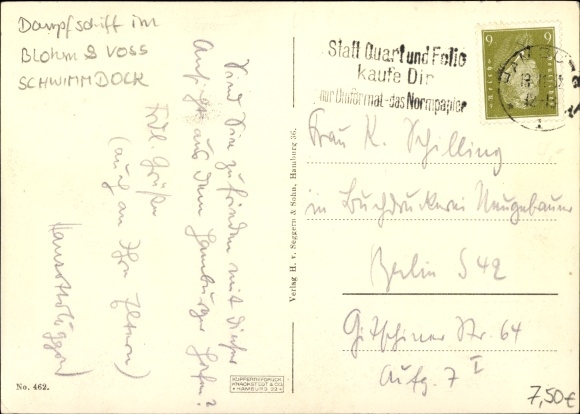 Dampfschiff im
Blohm & Voss
SCHWIMMDOCK
Sind Sie zufrieden mit dieser
Ansicht aus dem Hamburger Hafen?
Frdl. Grüße
(auch an Ihre Eltern)
No. 462.
Verlag H. v. Seggern & Sohn, Hamburg 36.
KUPFERTIEFDRUCK
KNACKSTEDT & CO
HAMBURG 22
Statt Quart und Folio
kaufe Din
nur Uniformat-das Normpapier
9 9
Frau K. Schilling
in Buchdruckerei Neugebauer
Berlin S 42
Gitschiner Str. 64
Aufg. 7 I
7,50€